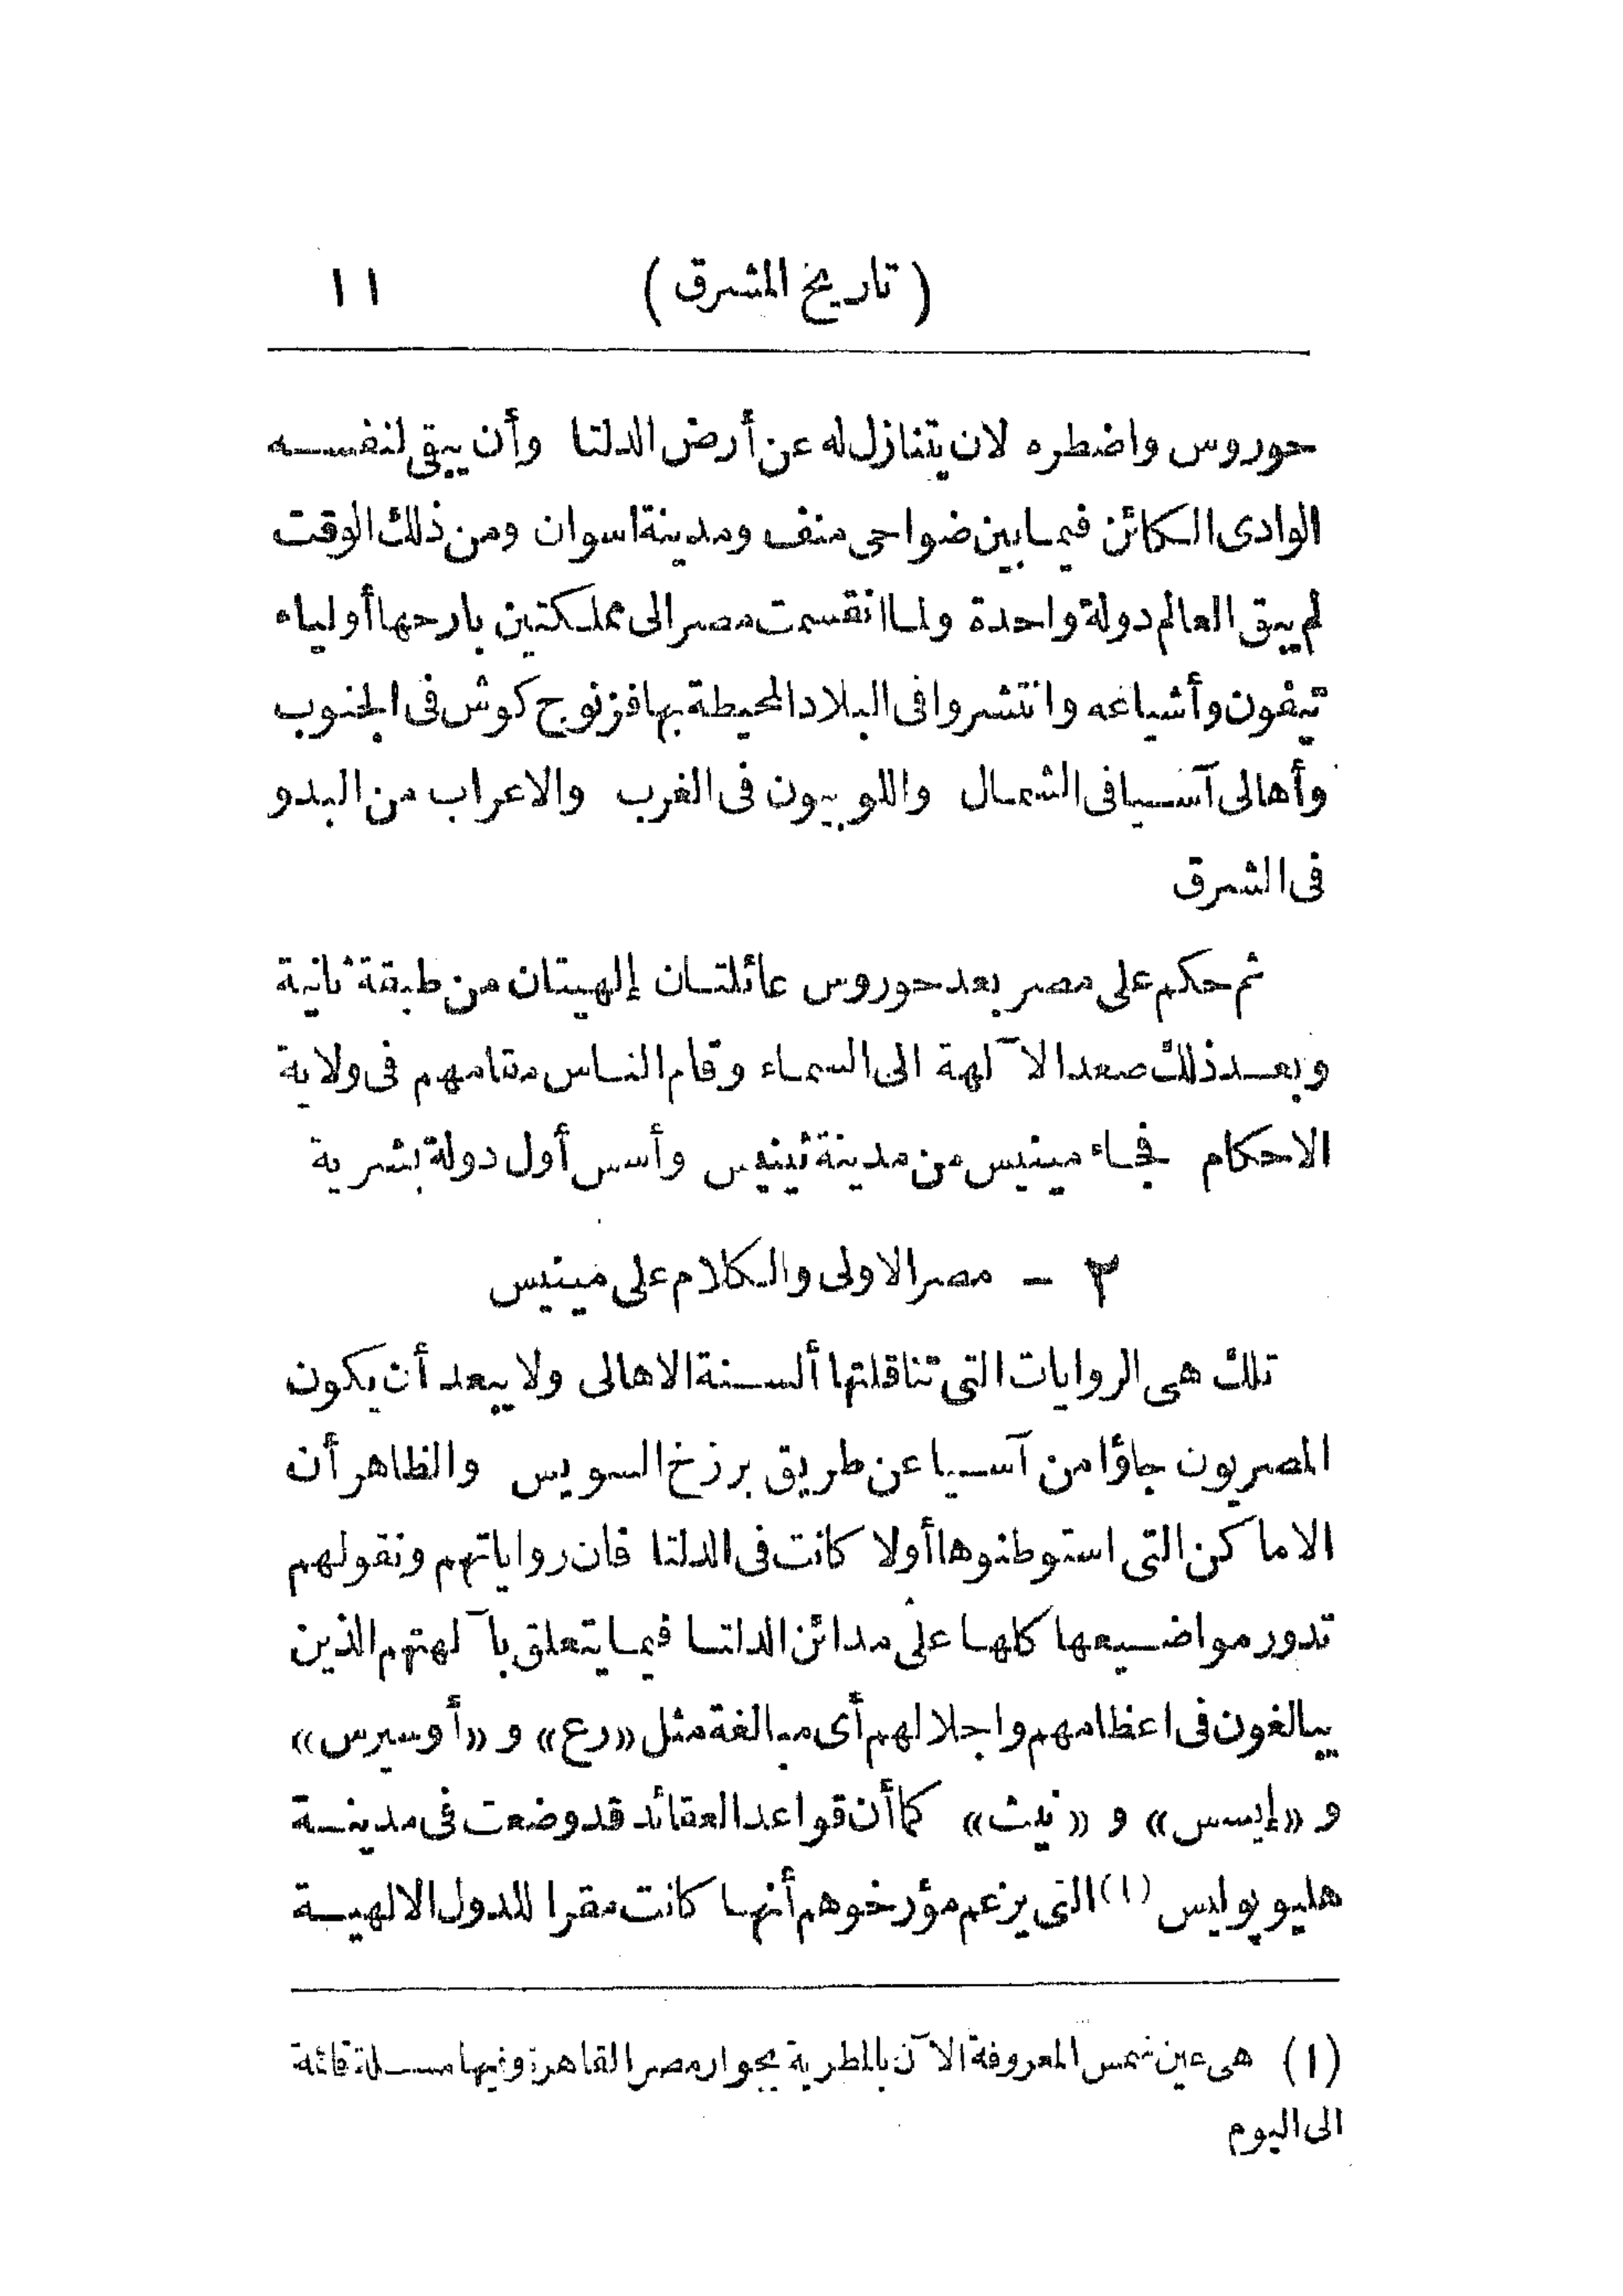 ( تاريخ المشرق ) ١١
حوروس واضطره لان يتنازل له عن أرض الدلتا وأن يبقى لنفسه
الوادى الكائن فيما بين ضواحى منف ومدينة اسوان ومن ذلك الوقت
لم يبق العالم دولة واحدة ولما انقسمت مصر الى مملكتين بارحها أولياء
تيفون وأشياعه وانتشروا فى البلاد المحيطة بها فزنوج كوش فى الجنوب
وأهالى آسيا فى الشمال واللوبيون فى الغرب والاعراب من البدو
فى الشرق
ثم حكم على مصر بعد حوروس عائلتان إلهيتان من طبقة ثانية
وبعد ذلك صعد الآلهة الى السماء وقام الناس مقامهم فى ولاية
الاحكام فجاء مينيس من مدينة ثينيس وأسس أول دولة بشرية
٣ - مصر الاولى والكلام على مينيس
تلك هى الروايات التى تناقلتها ألسنة الاهالى ولا يبعد أن يكون
المصريون جاؤا من آسيا عن طريق برزخ السويس والظاهر أن
الاماكن التى استوطنوها أولا كانت فى الدلتا فان رواياتهم ونقولهم
تدور مواضيعها كلها على مدائن الدلتا فيما يتعلق بآلهتهم الذين
يبالغون فى اعظامهم واجلالهم أى مبالغة مثل «رع» و «أوسيرس»
و «إيسس» و «نيث» كما أن قواعد العقائد قد وضعت فى مدينة
هليوپوليس (١) التى يزعم مؤرخوهم أنها كانت مقرا للدول الالهية
(١) هى عين شمس المعروفة الآن بالمطرية بجوار مصر القاهرة وفيها مسلة قائمة
الى اليوم